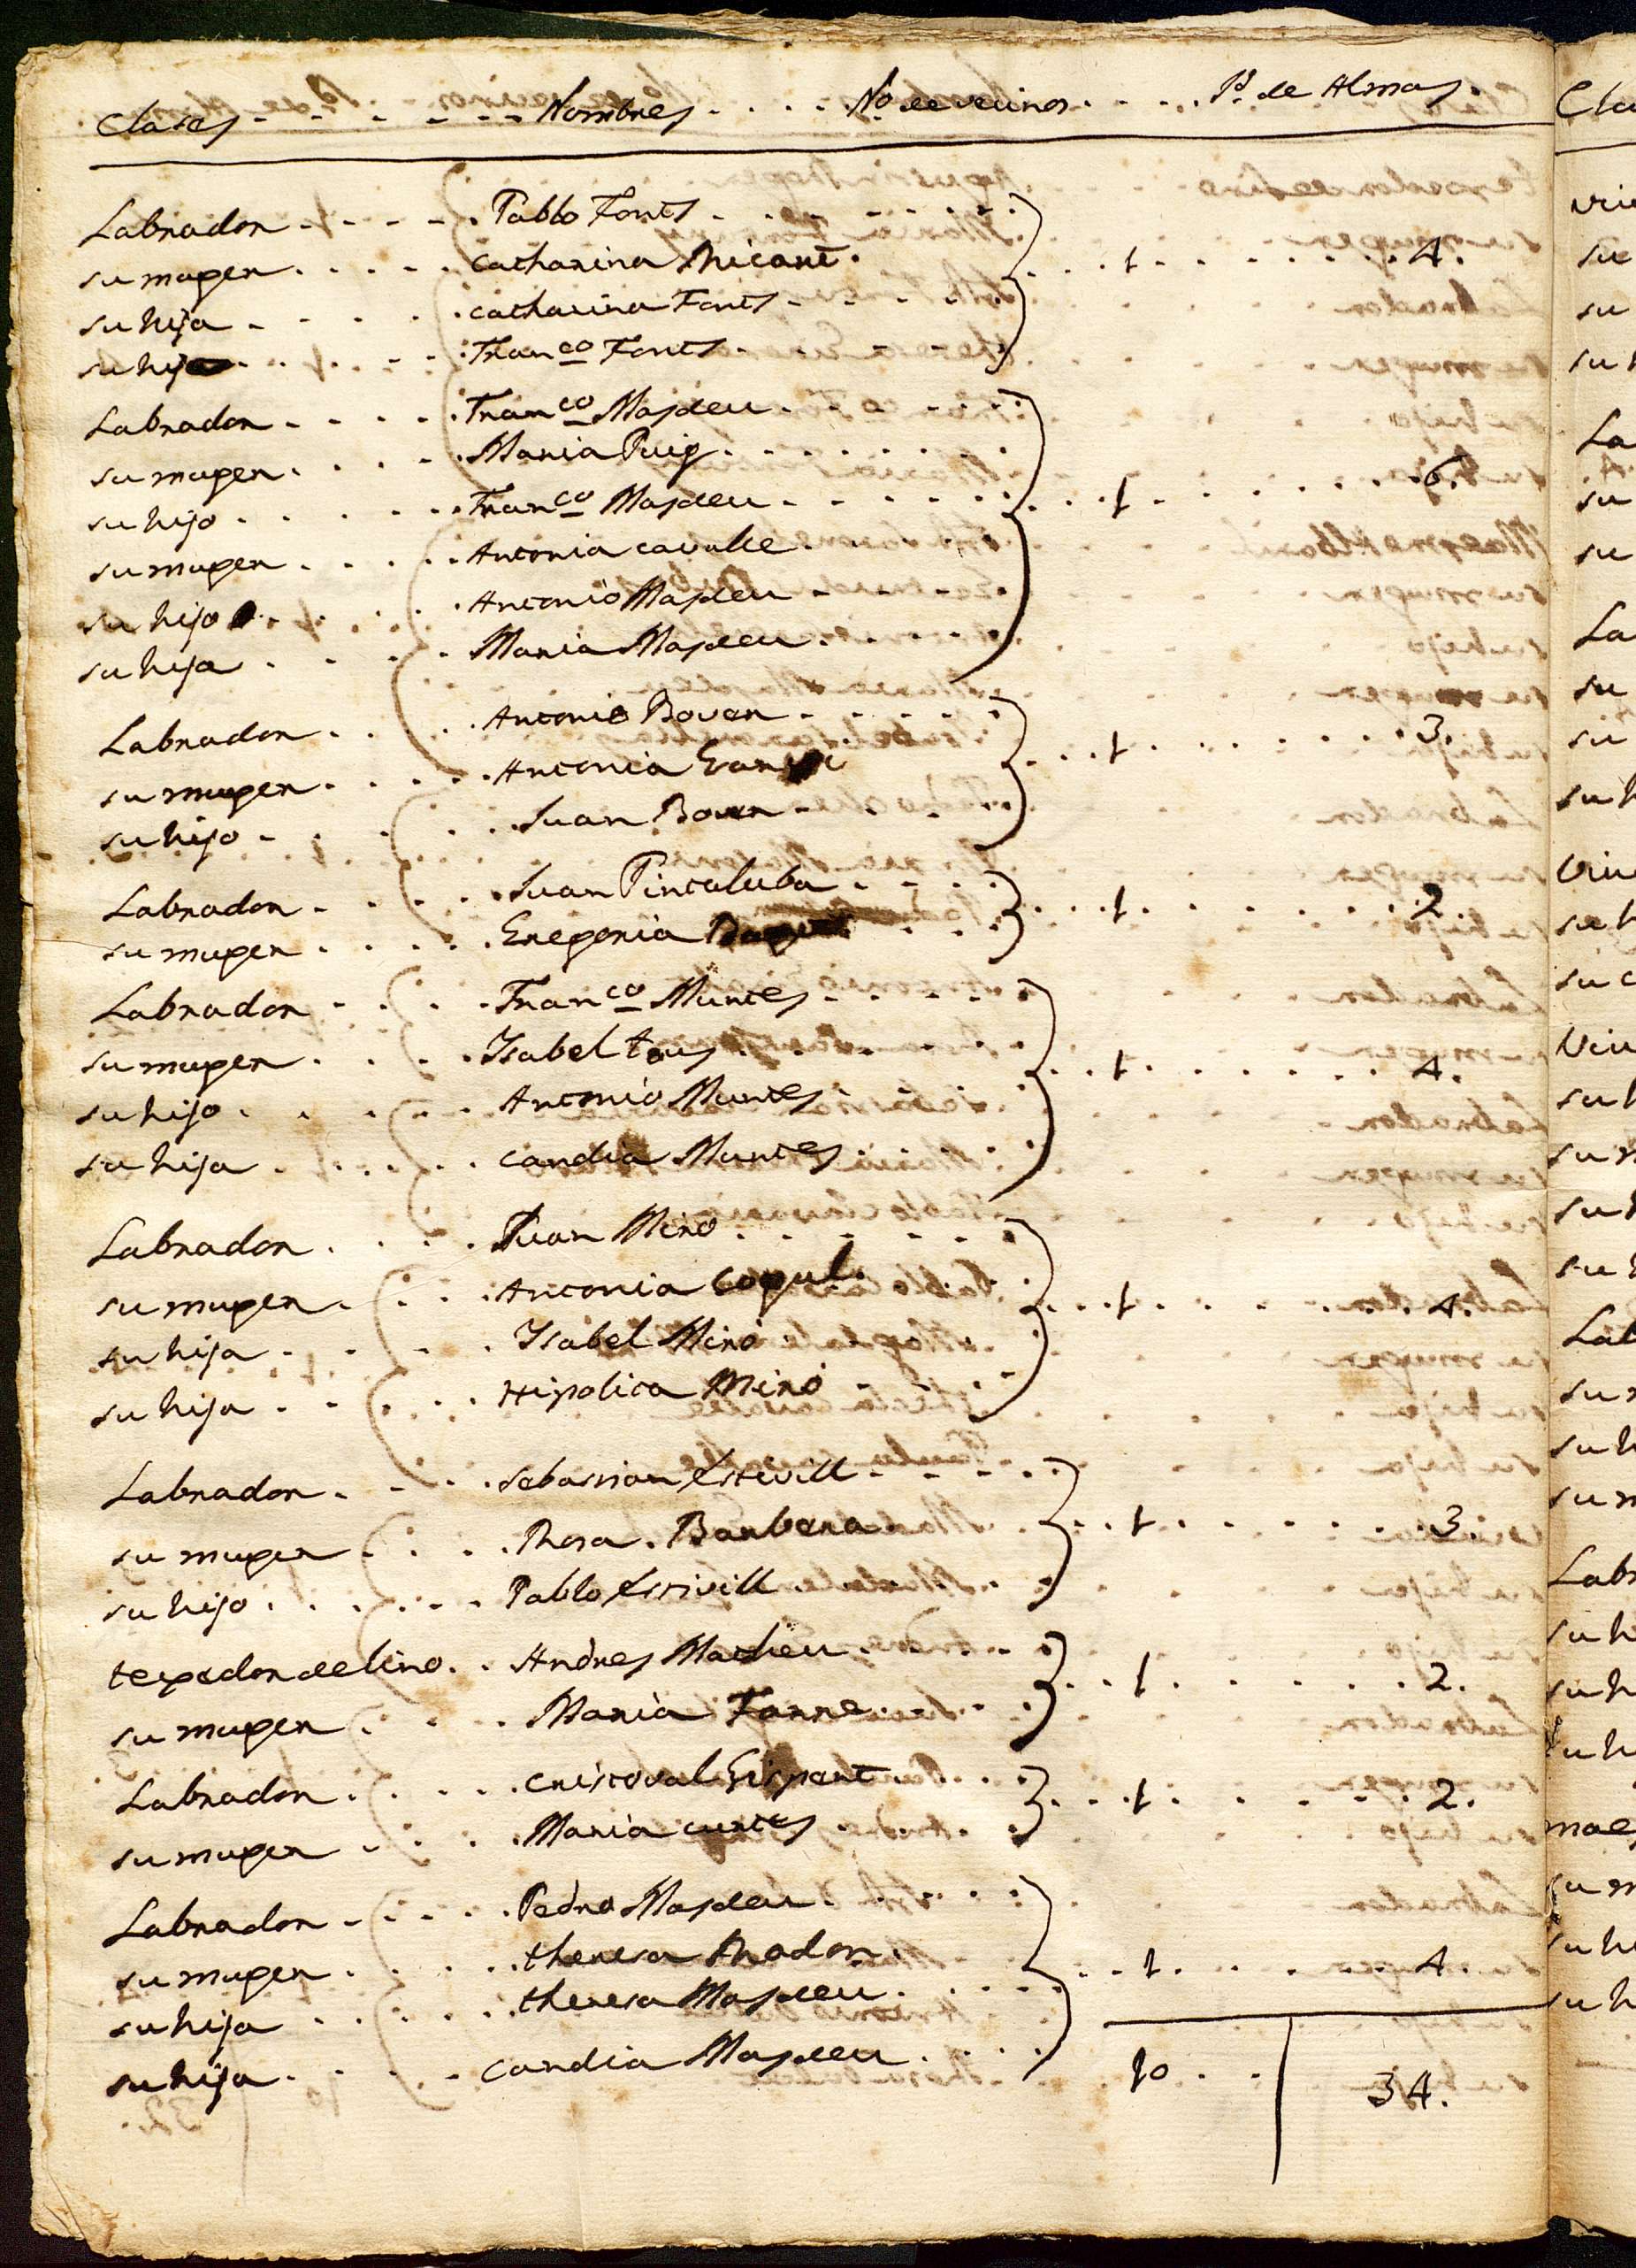 Clases Nombres No de vecinos Id de Almas
Labrador Pablo Fonts
su muger Catharina Ricart 1 4.
su hija Catharina Fonts
su hijo Franco Fonts
Labrador Franco Masdeu
su muger Maria Puig
su hijo Franco Masdeu 1 6.
su muger Antonia cavalle
su hijo Antonio Masdeu
su hija Maria Masdeu
Labrador Antonio Bover
su muger Antonia 1 3.
su hijo Juan Bover
Labrador Juan Pintaluba 1 2.
su muger Gregoria
Labrador Franco Muntes
su muger Isabel tous 1 4.
su hijo Antonio Muntes
su hija candia Muntes
Labrador Juan Miró
su muger Antonia Cogul 1 4.
su hija Isabel Miró
su hija Hipolita Miró
Labrador Sebastian Estivill
su muger Rosa Barbera 1 3.
su hijo Pablo Estivill
texedor de lino Andres Matheu 1 2.
su muger Maria Farre
Labrador Cristoval Gispert 1 2.
su muger Maria
Labrador Pedro Masdeu
su muger theresa Nador 1 4.
su hija theresa Masdeu
su hija Candia Masdeu
10 34.